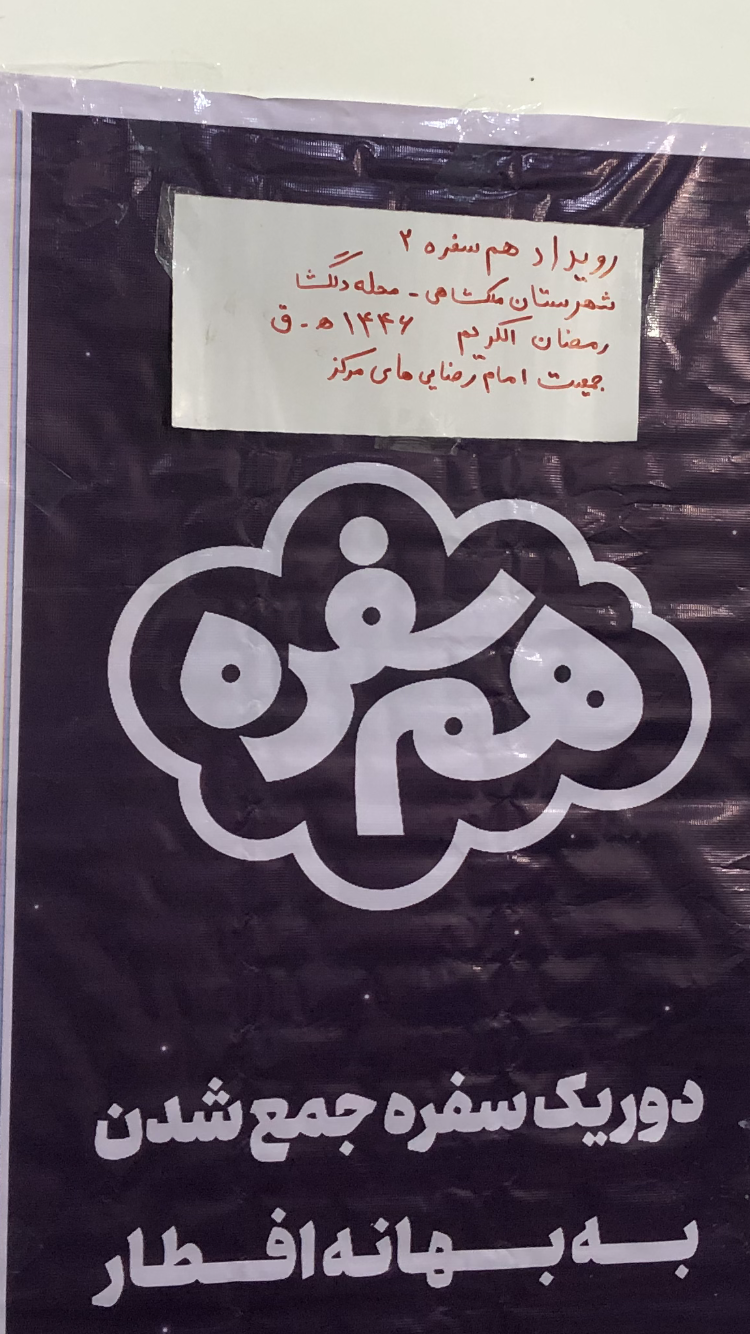 رویداد هم سفره ۲
شهرستان ملکشاهی - محله دلگشا
رمضان الکریم ۱۴۴۶ ه‍ - ق
جمعیت امام رضایی های مرکز
هم سفره
دور یک سفره جمع شدن
به بهانه افطار